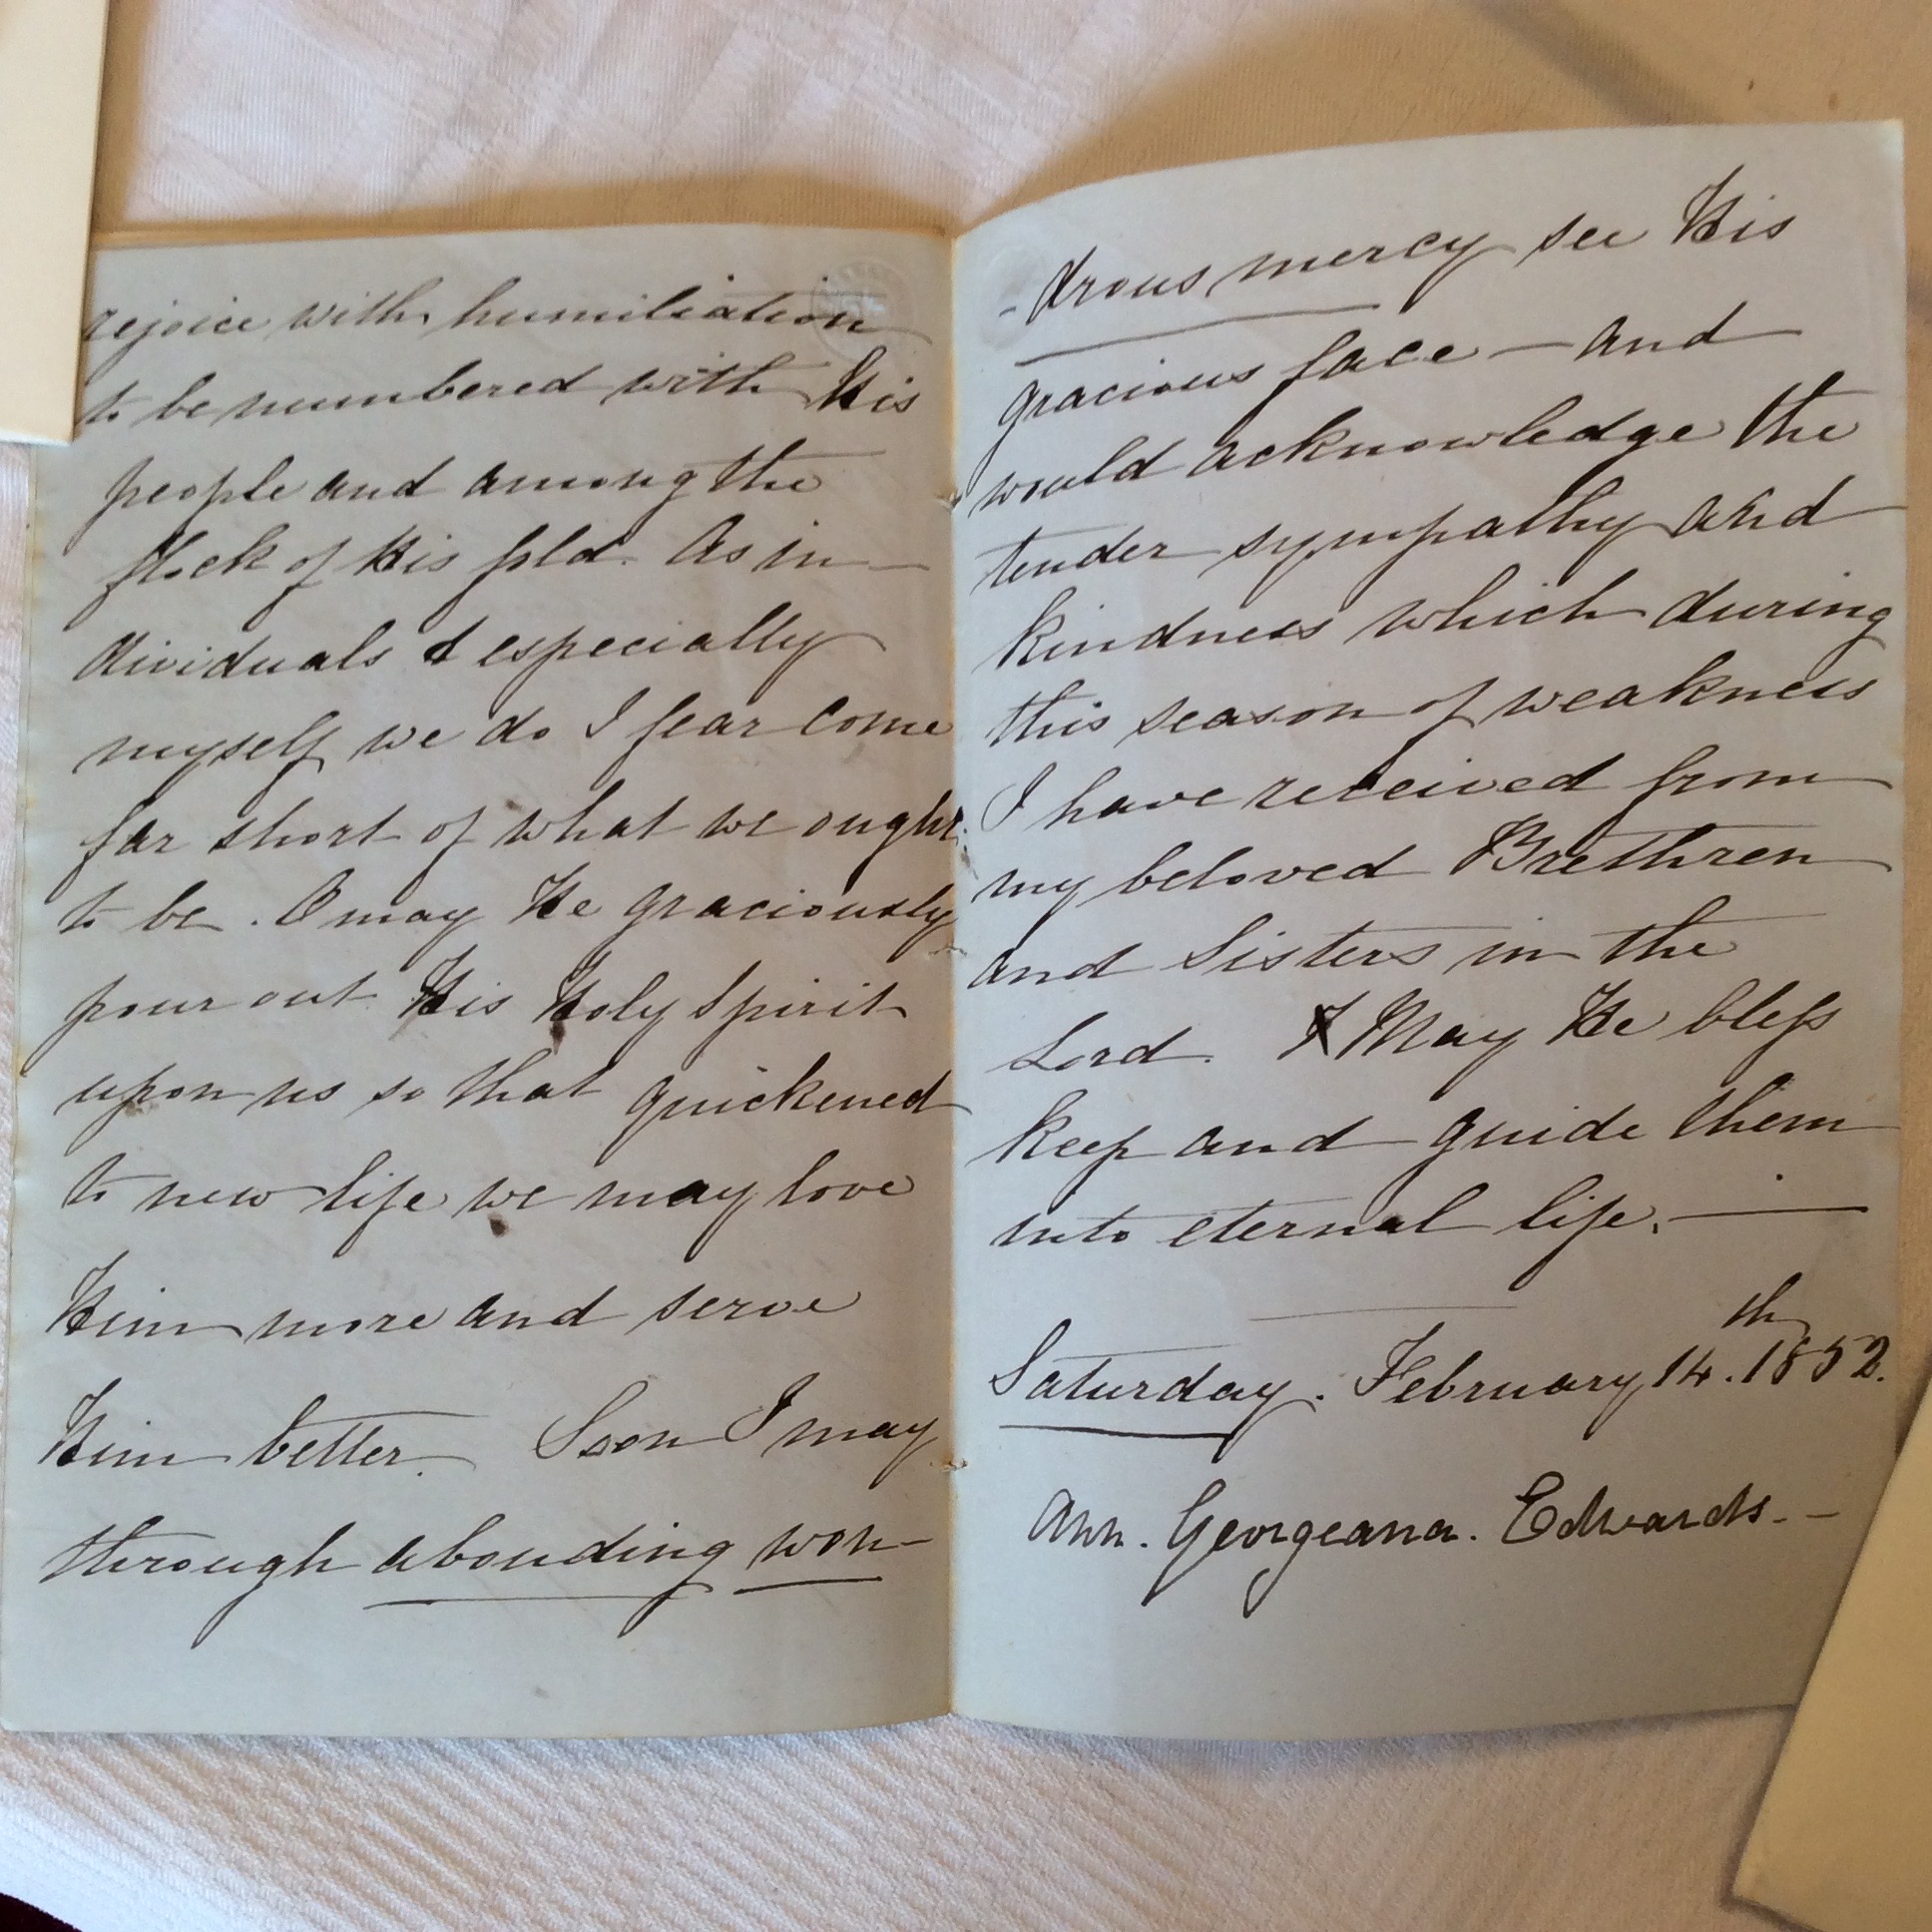 rejoice with humiliation
to be numbered with His
people and among the
flock of His fold. As in-
dividuals & especially
myself we do I fear come
far short of what we ought
to be. O may He graciously
pour out His Holy Spirit
upon us so that quickened
to new life we may love
Him more and serve
Him better. Soon I may
through abounding won-
-drous mercy see His
gracious face — and
would acknowledge the
tender sympathy and
kindness which during
this season of weakness
I have received from
my beloved Brethren
and Sisters in the
Lord. May He bless
keep and guide them
into eternal life. —
Saturday. February 14th. 1852.
Ann. Georgeana. Edwards. -